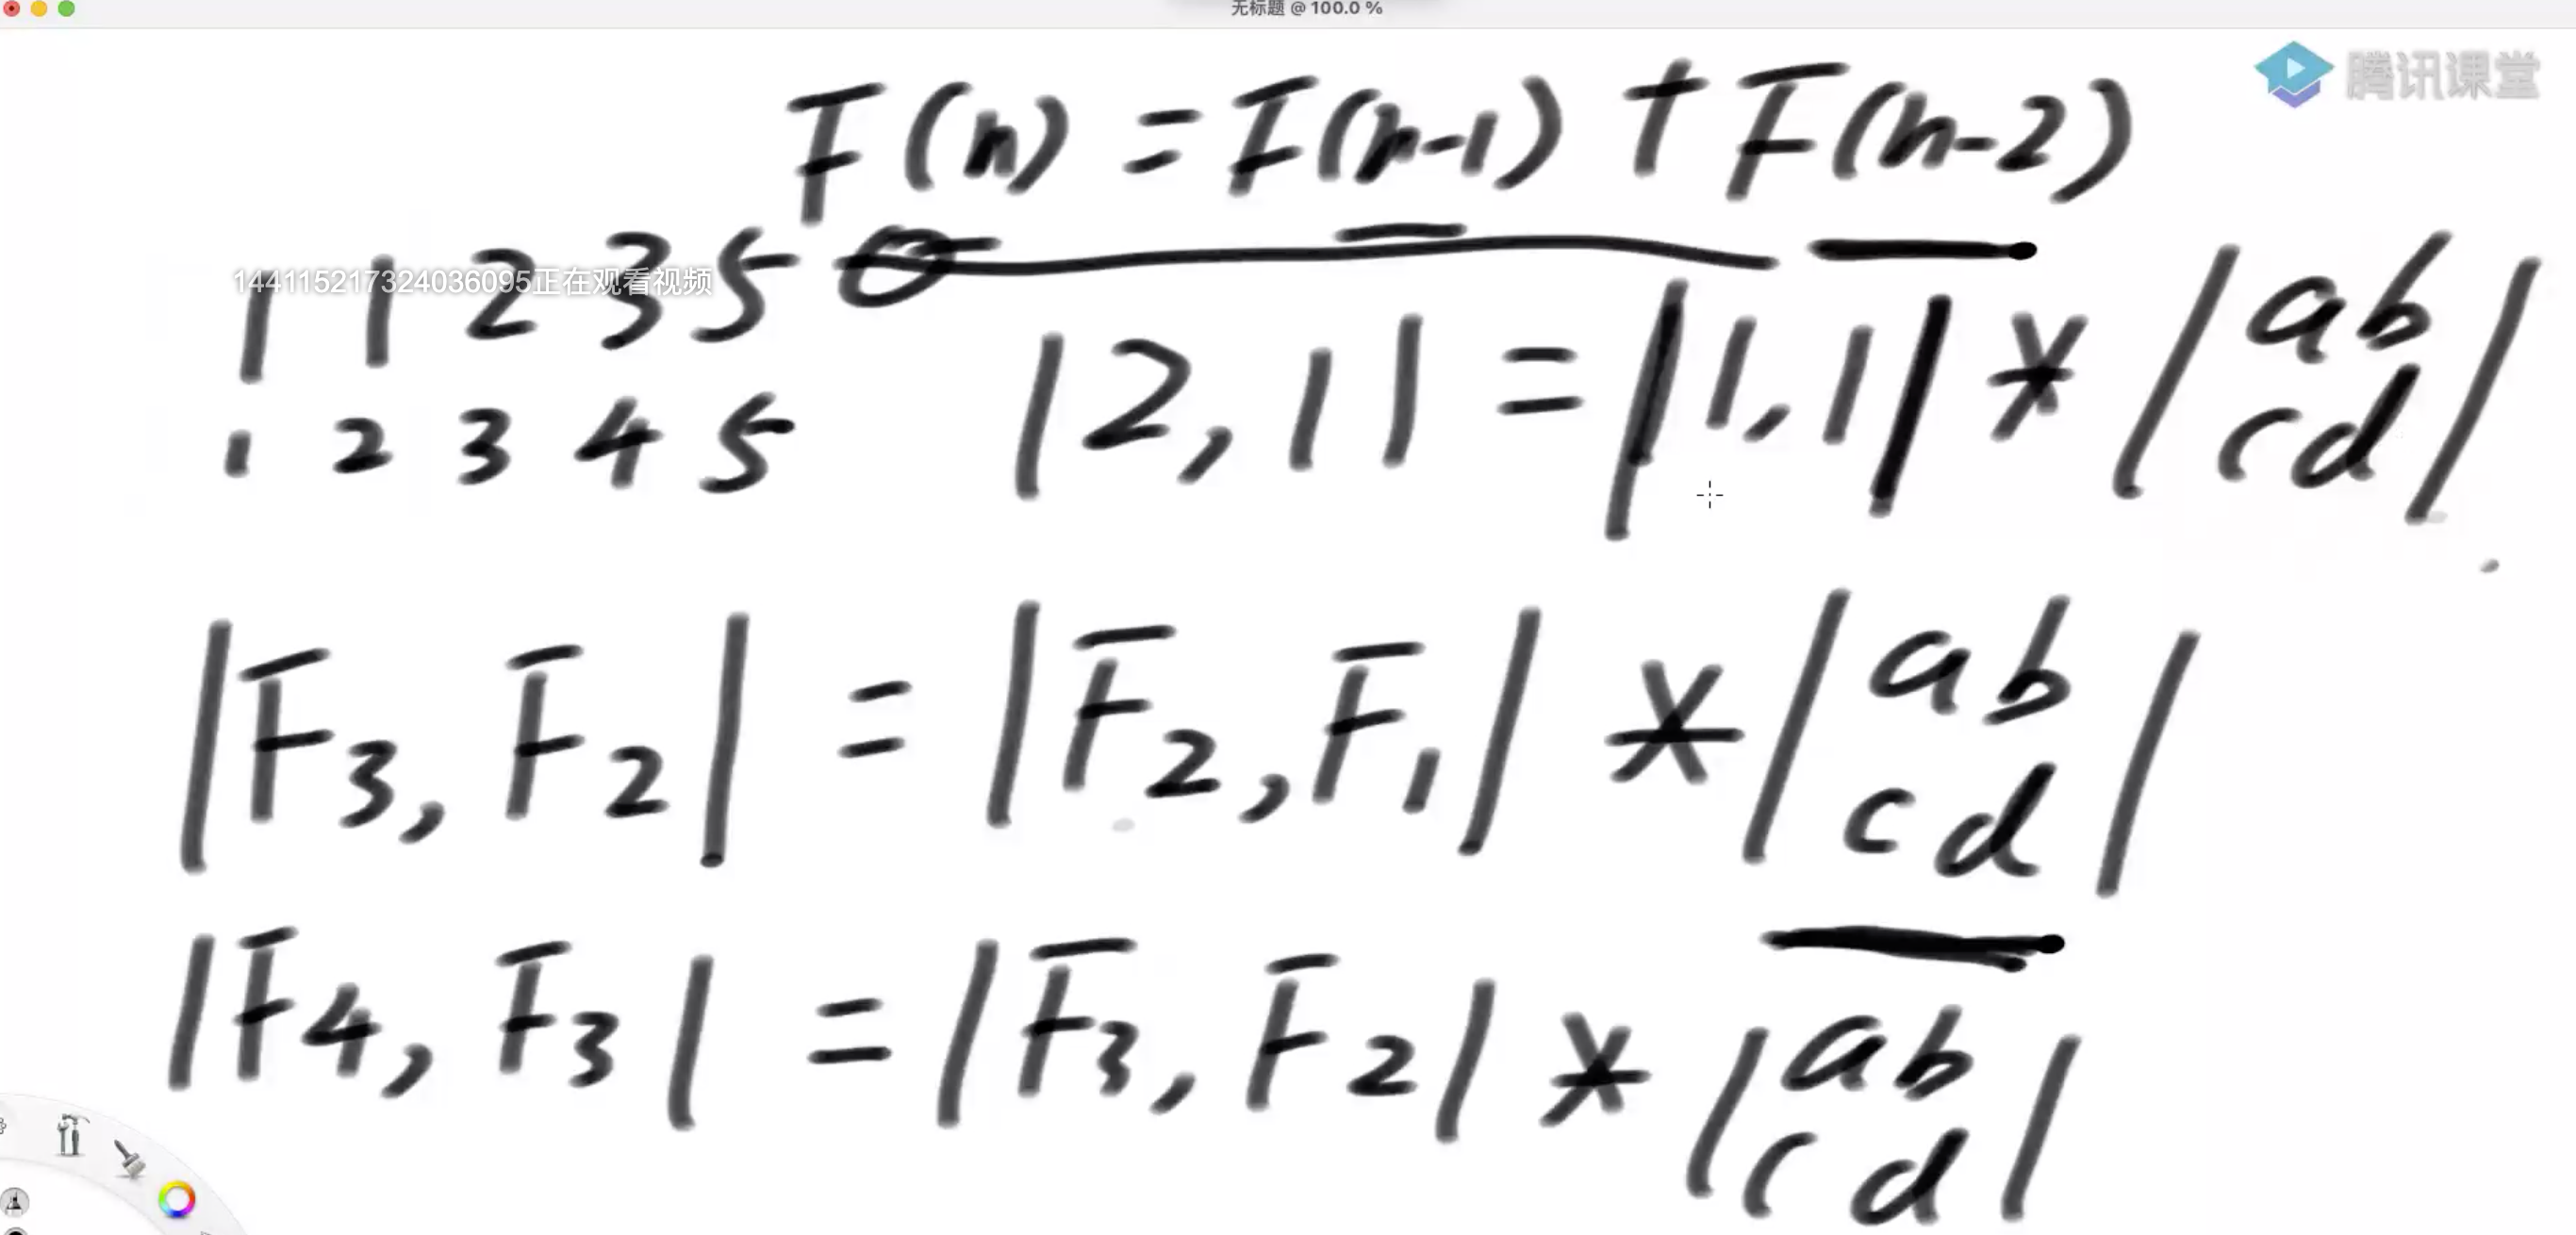 无标题 @ 100.0 %
腾讯课堂
F(n) = F(n-1) + F(n-2)
144115217324036095正在观看视频
1 1 2 3 5
1 2 3 4 5
|2,1| = |1,1| * |a b
c d|
|F3, F2| = |F2, F1| * |a b
c d|
|F4, F3| = |F3, F2| * |a b
c d|